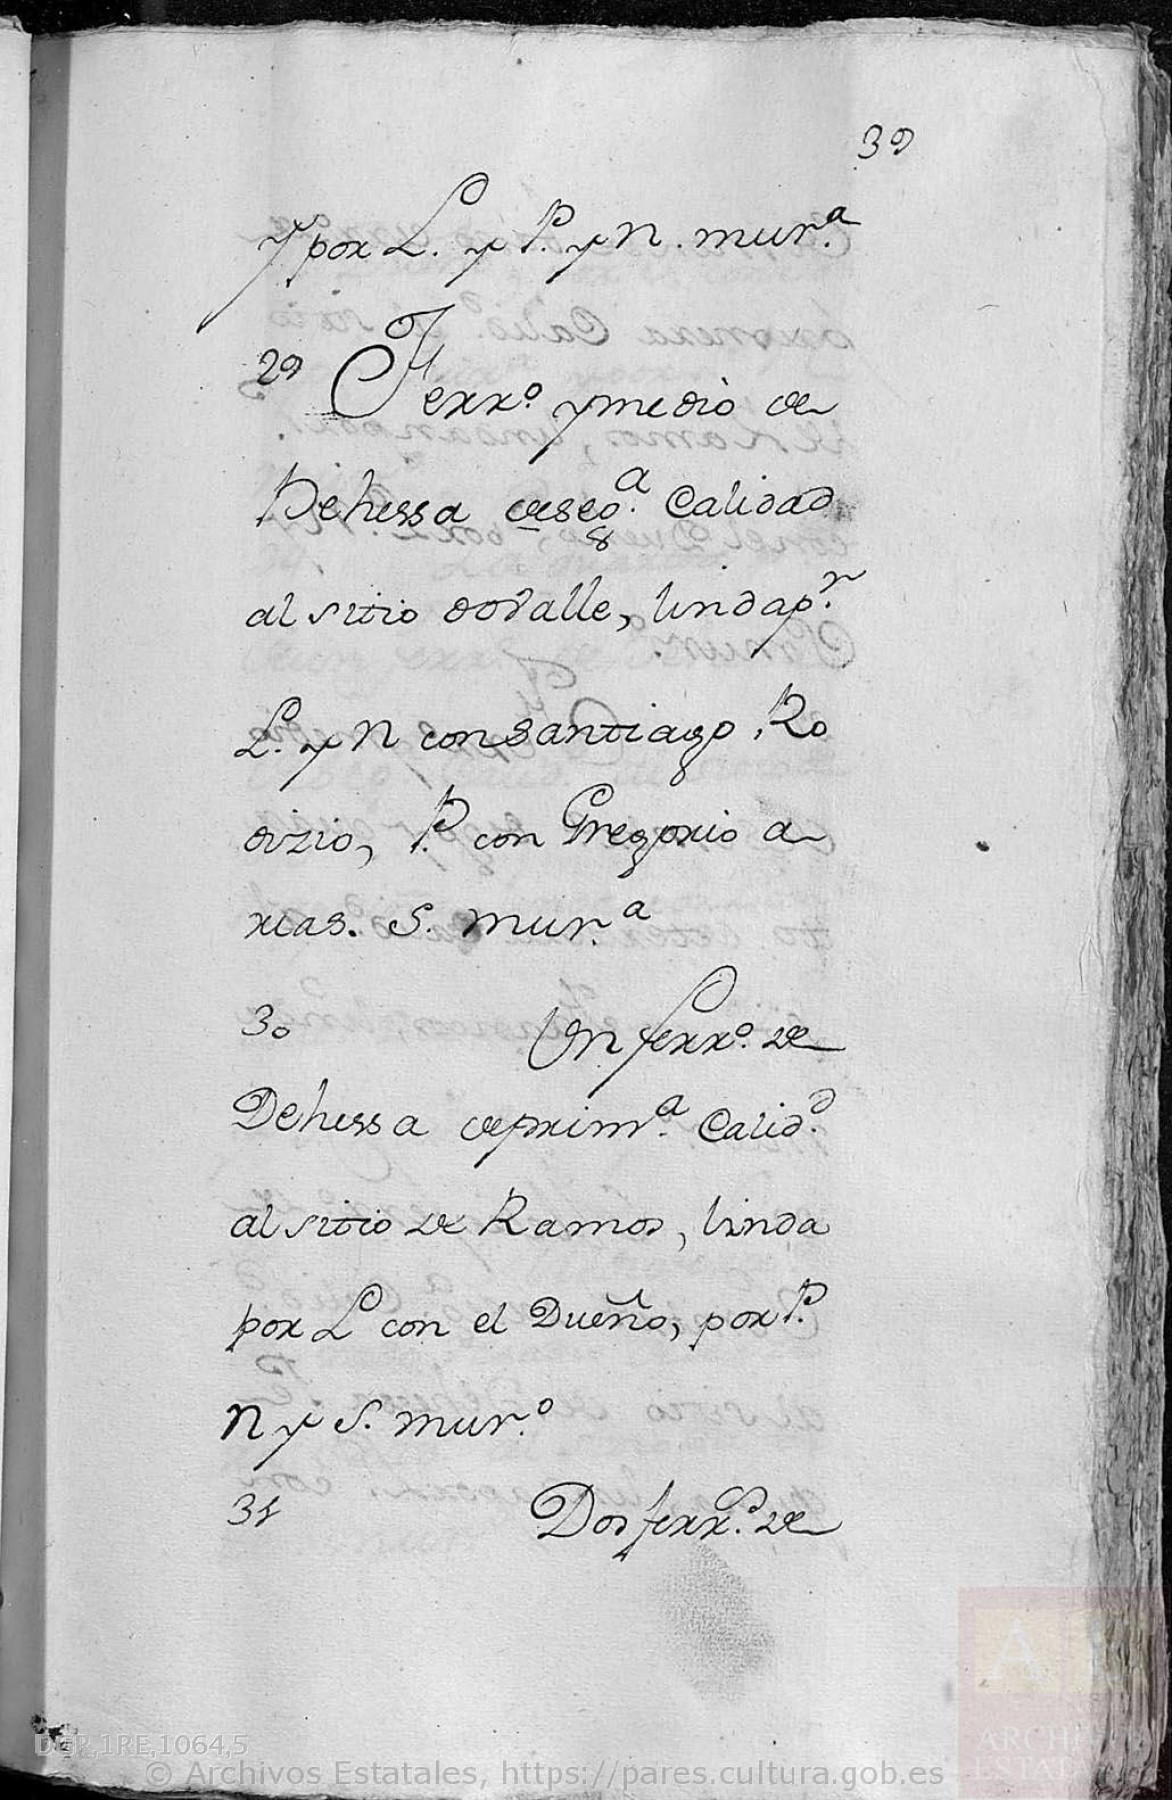 39
y por L. y P. y N. mur.ª
29 Ferr.º y medio de
Dehessa de seg.ª Calidad
al sitio dovalle, linda p.r
L. y N con Santiago Ro
drizio, P. con Gregorio a
rias. S. mur.ª
30 Un ferr.º de
Dehessa de prim.ª Calid.d
al sitio de Ramos, linda
por L con el Dueño, por P.
N y S. mur.º
31 Dos ferr.s de
DGP,1RE,1064,5
© Archivos Estatales, https://pares.cultura.gob.es